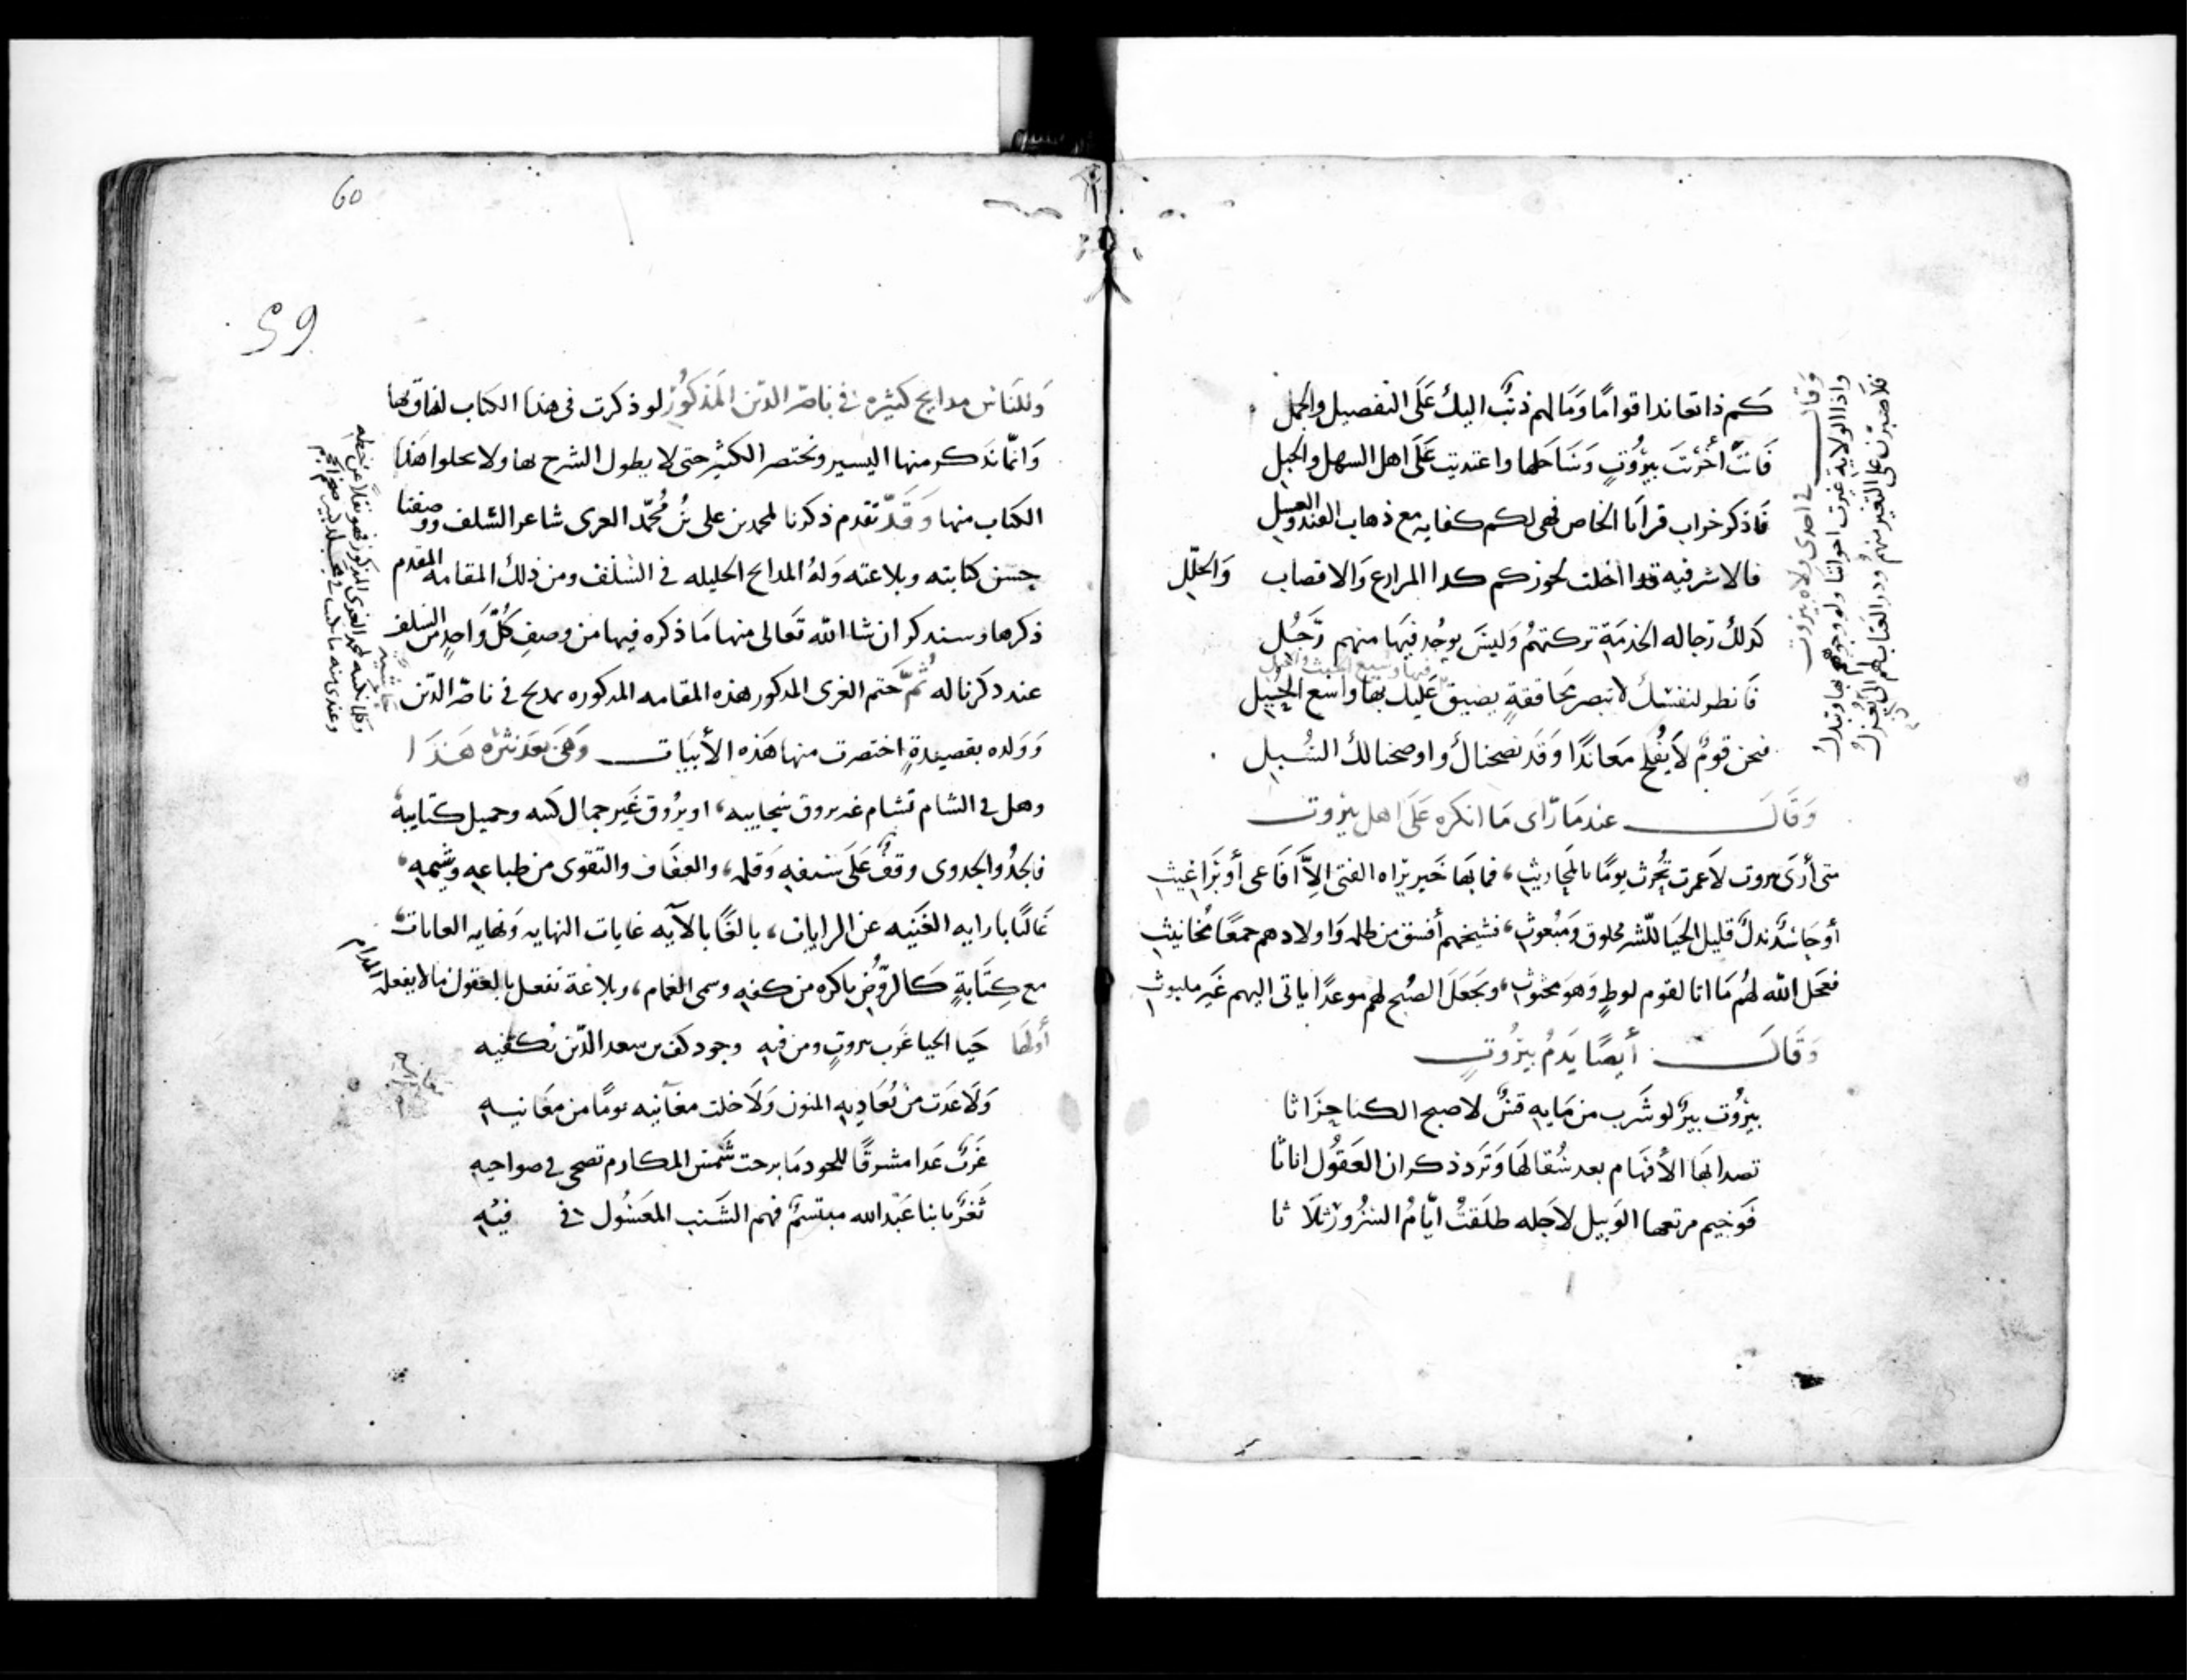 كم ذا تعاندا قوامًا وَمَا لهم ذنبٌ اليك عَلَى التفصيل والجمل
فَانتَ أخربتَ بيرُوتٍ وَسَاحَلها واعتديت عَلَى اهل السهل والجبل
فَاذكر خراب قرايَا الخاص فهى لكم كفايه مع ذهاب القند والعسل
فالاشرفيه قد اخلت لجوزكم كدا المزارع وَالاقصاب وَالحلل
كذلك رجاله الخدمَة تركتهمُ وَليسَ يوجُد فيهَا منهم رَجُل
فَانظر لنفسك لا تبصر محَاققةٍ يضيق عَليك بها واسع الحِيل
فنحن قومٌ لاَ يفُلح مَعَاندًا وَقَد نصحناك واوضحنا لك السُبل
وَقَالَ عندمَا رَّاى مَا انكره عَلَى اهل بيرُوت
متى أرَى بيروت لاَ عمرت تُحْرث يومًا بالمحَاريثِ، فما بهَا خَير يرَاه الفتى الاَّ افَاعى أو بَرَاغيثِ
أو جَاسٌد ندلٌ قليل الحيَا للشر مخلوق وَمبُعوثِ، فشيخهم أفسق من ظله وَاولادهم جمعًا مخانيثِ
فعجل الله لهُم مَا اتا لقوم لوطٍ وَهو محثوثِ، وَيجعَل الصُبح لهم موعدًا ياتى اليهم غَير ملبوثِ
وَقَالَ أيضًا يَذمُ بيرُوتِ
بيرُوت بيرٌ لو شَرب من مَايه قسٌ لاصبح الكنا حرَاثا
تصدا بهَا الأفهَام بعد سُقالهَا وَتَرد ذكران العَقُول اناثَا
فَوخيم مرتعها الوَبيل لاَجله طلَقتْ ايَّامُ السرُور ثلاَثا
وَقال في احدى ولاه بيروت
واذا الولاية غيرت احوالنا ولو وجوههم بها وتبدلُ
فلاَصبرن على التغير منهمُ ودر العتاب لهم الى ان يُعزلُ
60
59
وَللنَاس مدايح كثيره في ناصر الدّين المَذكُور لو ذكرت فى هذا الكتاب لضاق بها
وَانّما نذكر منها اليسير ونختصر الكثير حتى لا يطول الشرح بها ولا يخلوا هَذا
الكتاب منها وَقَدّ تقدم ذكرنا لمحمد بن على بنُ مُحُمّد الغزى شاعر السَّلف ووصفنا
حسن كتابته وبلاغته وَلهُ المدايح الجليله فى السَلف ومن ذلك المقامه المقدم
ذكرها وسنذكر ان شا اللّه تَعالى منها مَا ذكره فيها من وصفِ كُلّ وَاحدٍ من السَلف
عند ذكرنا له ثُمّ ختم الغزى المذكور هذه المقامه المذكوره بمديح فى ناصر الدّين
وَوَلده بقصيدةٍ اختصرت منها هَذه الأبيَات وَهىَ بعَد نثره هَذَا
وهل في الشام تشام غير بروق سحايبه، او يرُوق غَير جمال كتبه وجميل كتايبهَ
فالجدُ والجدوى وقفٌ عَلَى سيفهِ وَقلمهِ، والعفَاف والتقوى من طباعهِ وشيمهِ،
غَالبًا بارايه الغَنيه عن الرايات، بالغًا بالآيه غايات النهايه وَنهايه الغايات،
مع كِتَابةٍ كَالروّض باكره من كفهِ وسمى الغمام، وبلاغة تفعل بالعقول ما لا يفعله المدام
أولهَا حَيا الحيا غَرب بيروتٍ ومن فيهِ وجود كف بن سعد الدّين يُكفيه
وَلاَ عَدَت مَن يُعَاديهِ المنون وَلاَ خلت مغَانيه يومًا من معَانيهِ
غَربٌ غَدا مشرقًا للجود مَا برحت شمس المكارم تضحى فى ضواحيه
ثَغرٌ بابنا عَبّد الله مبتسمٌ فهم الشَنب المعَسُول فى فيهِ